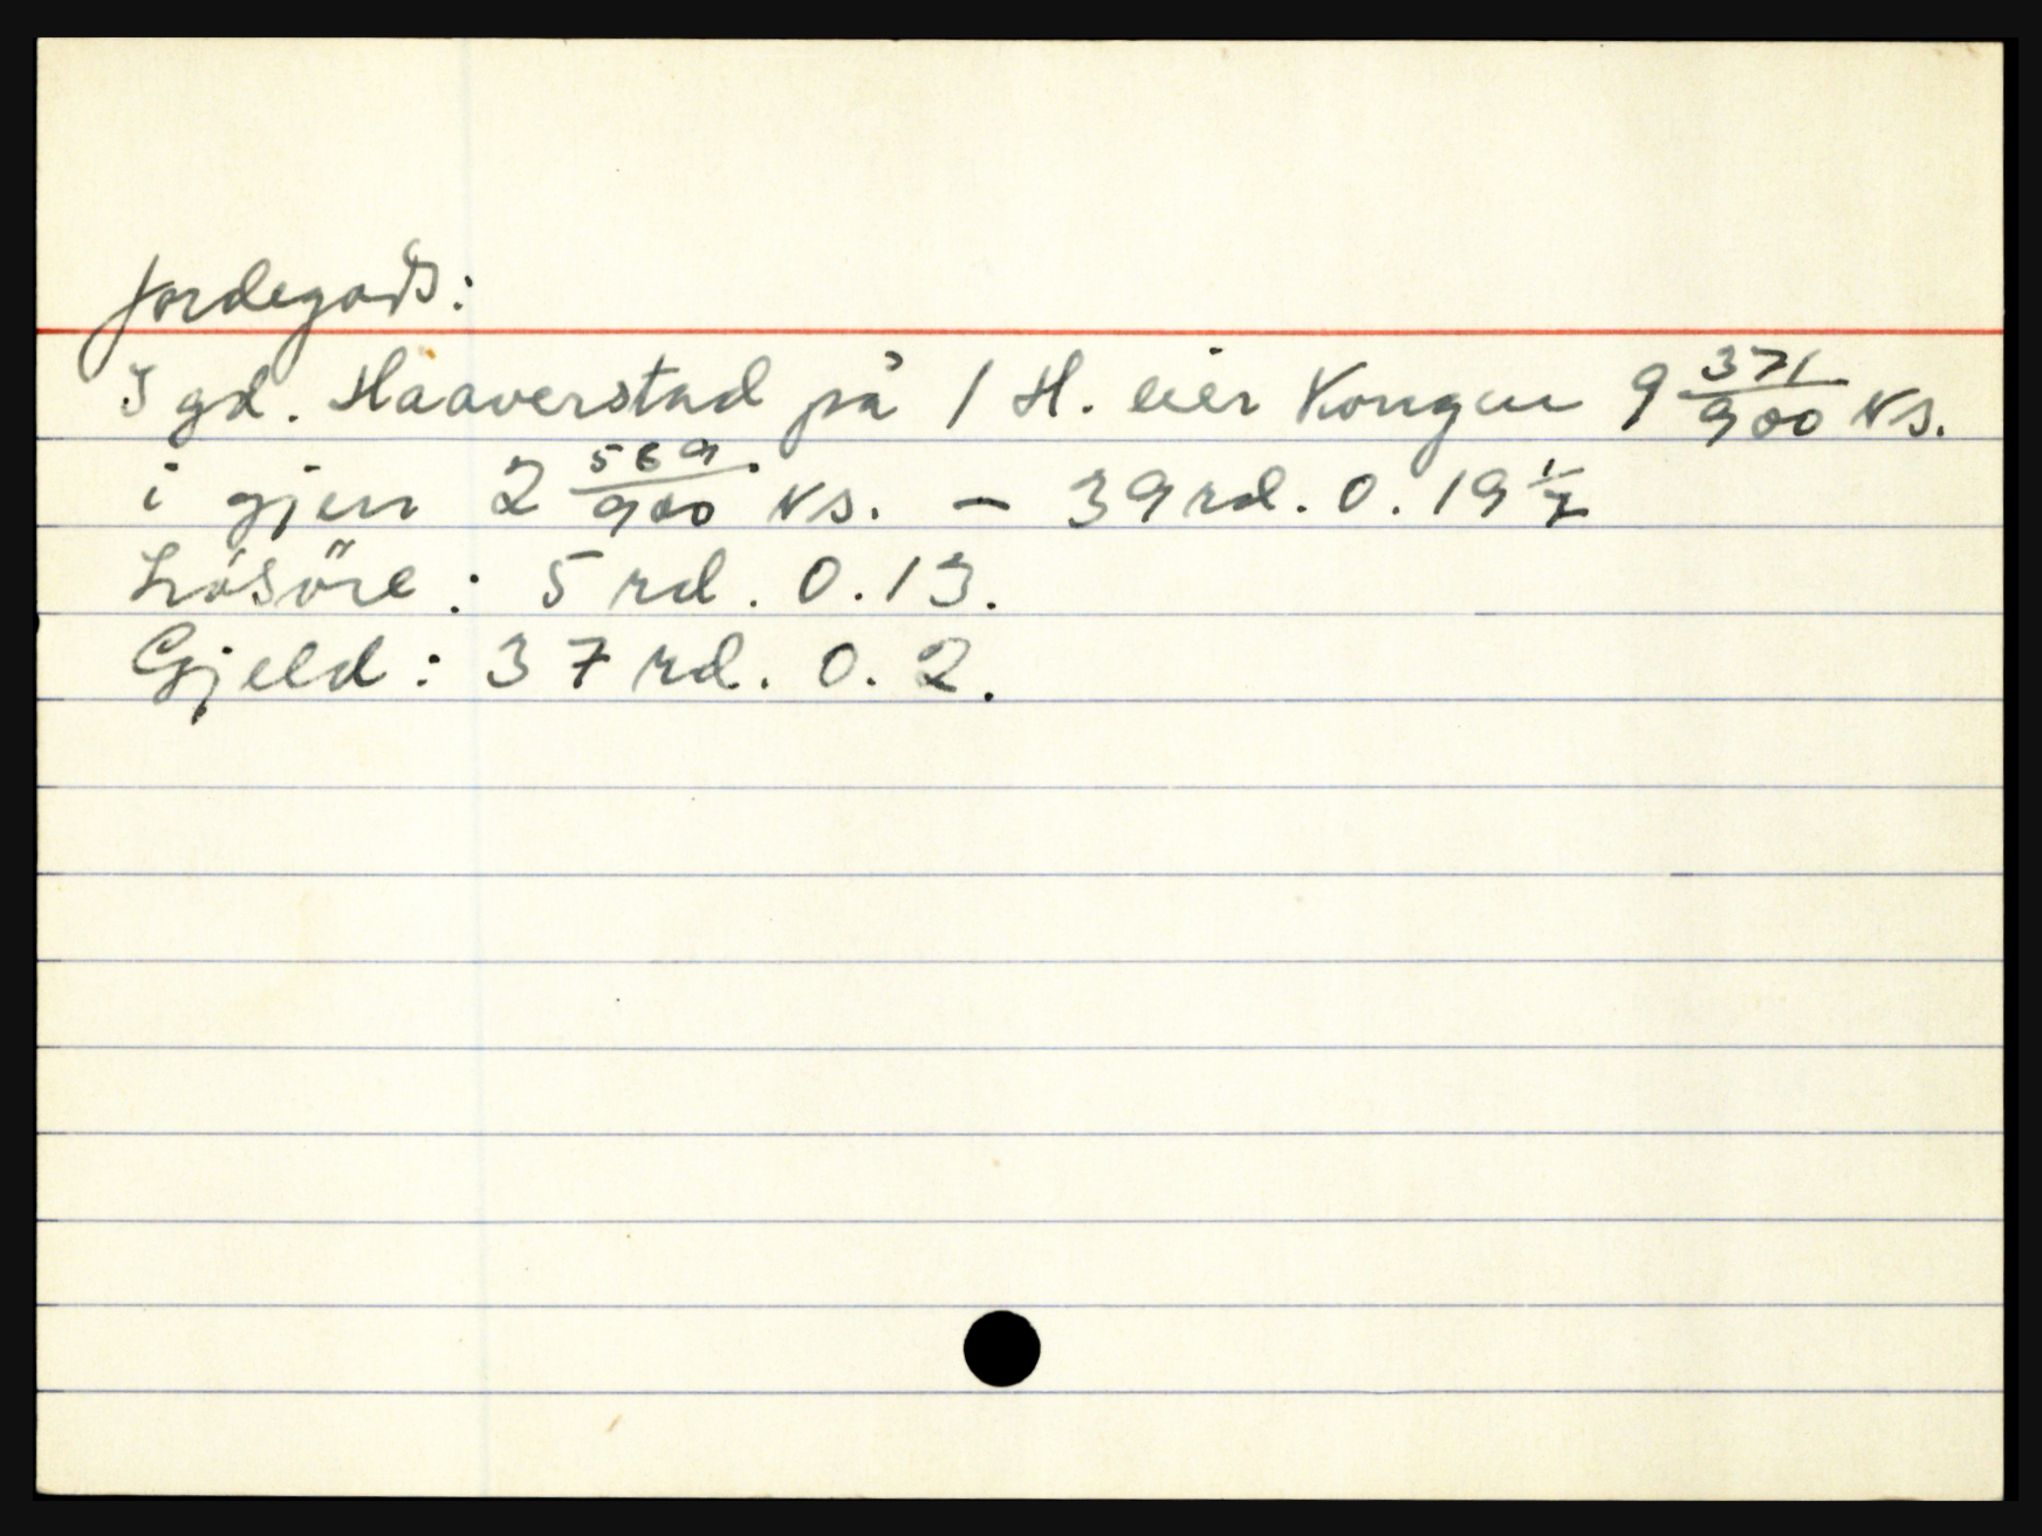 Jordegods:
I gd. Haaverstad på 1 H. eier Kongen 9 371/900 ks.
i gjen 2 569/900 ks. – 39 rd. 0. 19 1/2
Lösöre: 5 rd. 0. 13.
Gjeld: 37 rd. 0. 2.